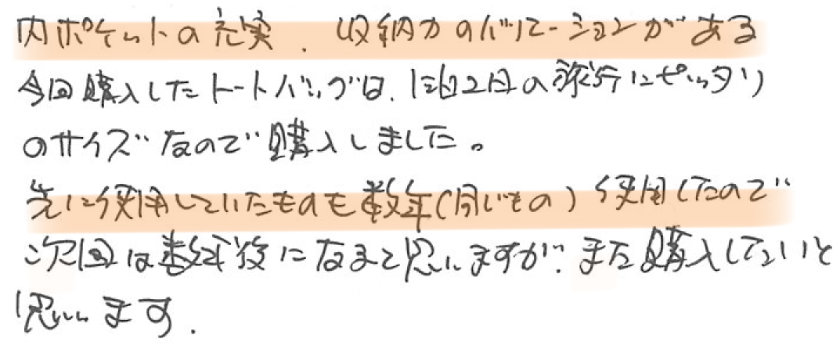 内ポケットの充実、収納力のバリエーションがある
今回購入したトートバッグは、1泊2日の旅行にピッタリ
のサイズなので購入しました。
先に使用していたものも数年(同じもの)使用したので
次回は数年後になると思いますが、また購入したいと
思います.